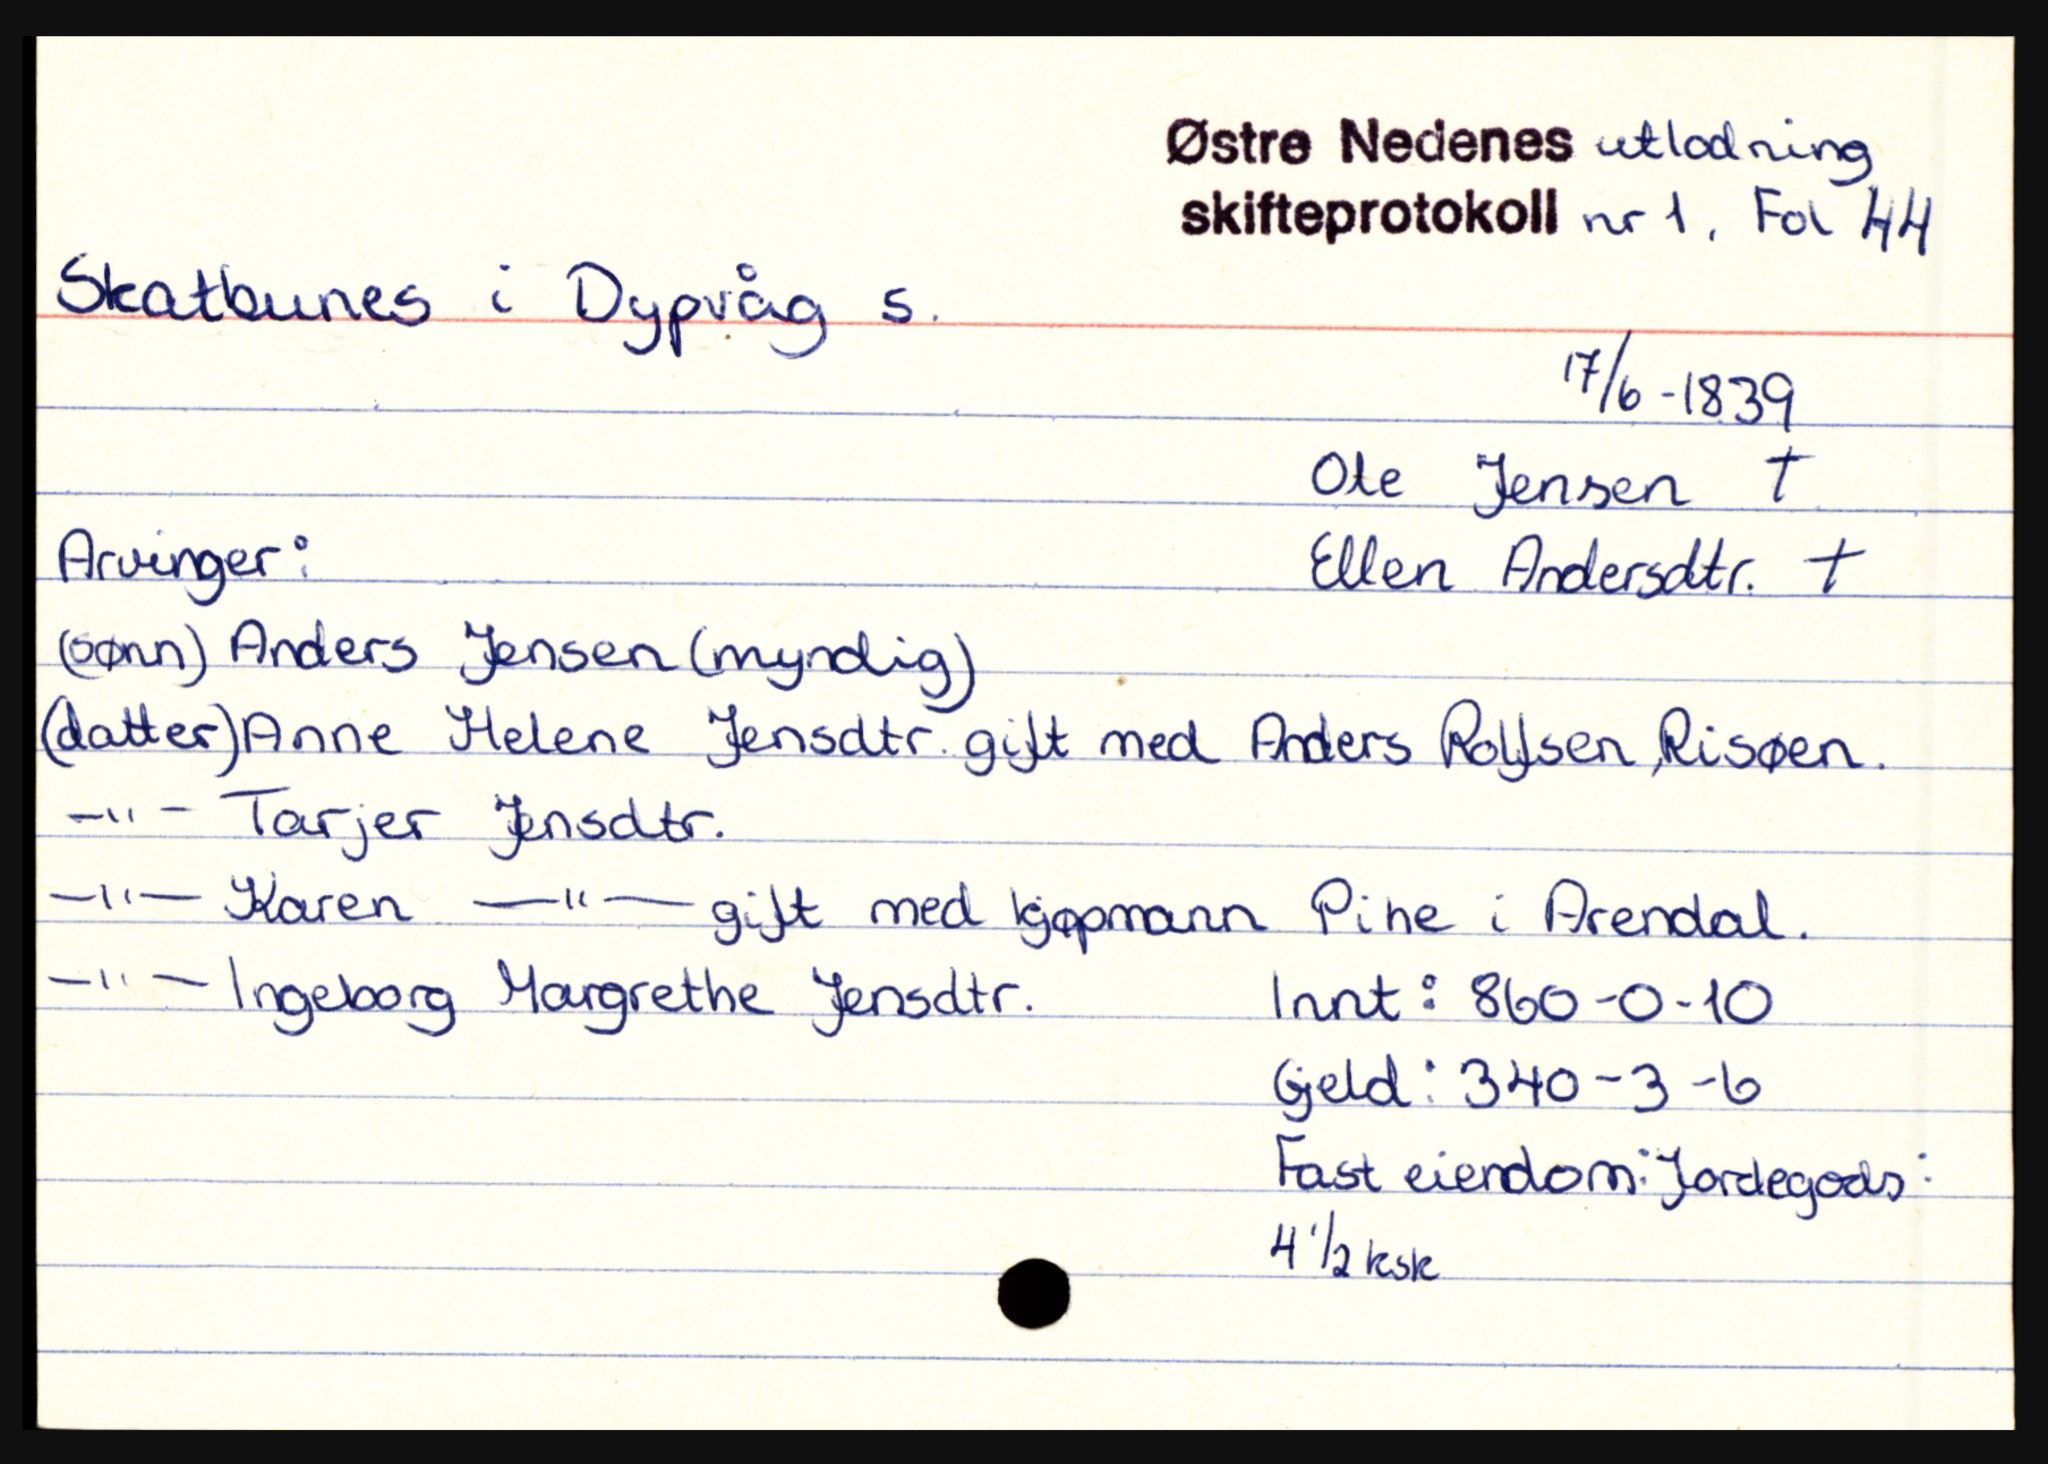 Østre Nedenes utlodning
skifteprotokoll nr 1, Fol 44
Skatbunes i Dypvåg s.
17/6 -1839
Ole Jensen †
Arvinger:
Ellen Andersdtr. †
(sønn) Anders Jensen (myndig)
(datter) Anne Helene Jensdtr. gift med Anders Rolfsen, Risøen.
-"- Tarjer Jensdtr.
-"- Karen -"- gift med kjøpmann Pihe i Arendal.
-"- Ingeborg Margrethe Jensdtr.
Innt: 860-0-10
Gjeld: 340-3-6
Fast eiendom: Jordegods:
4 1/2 ksk